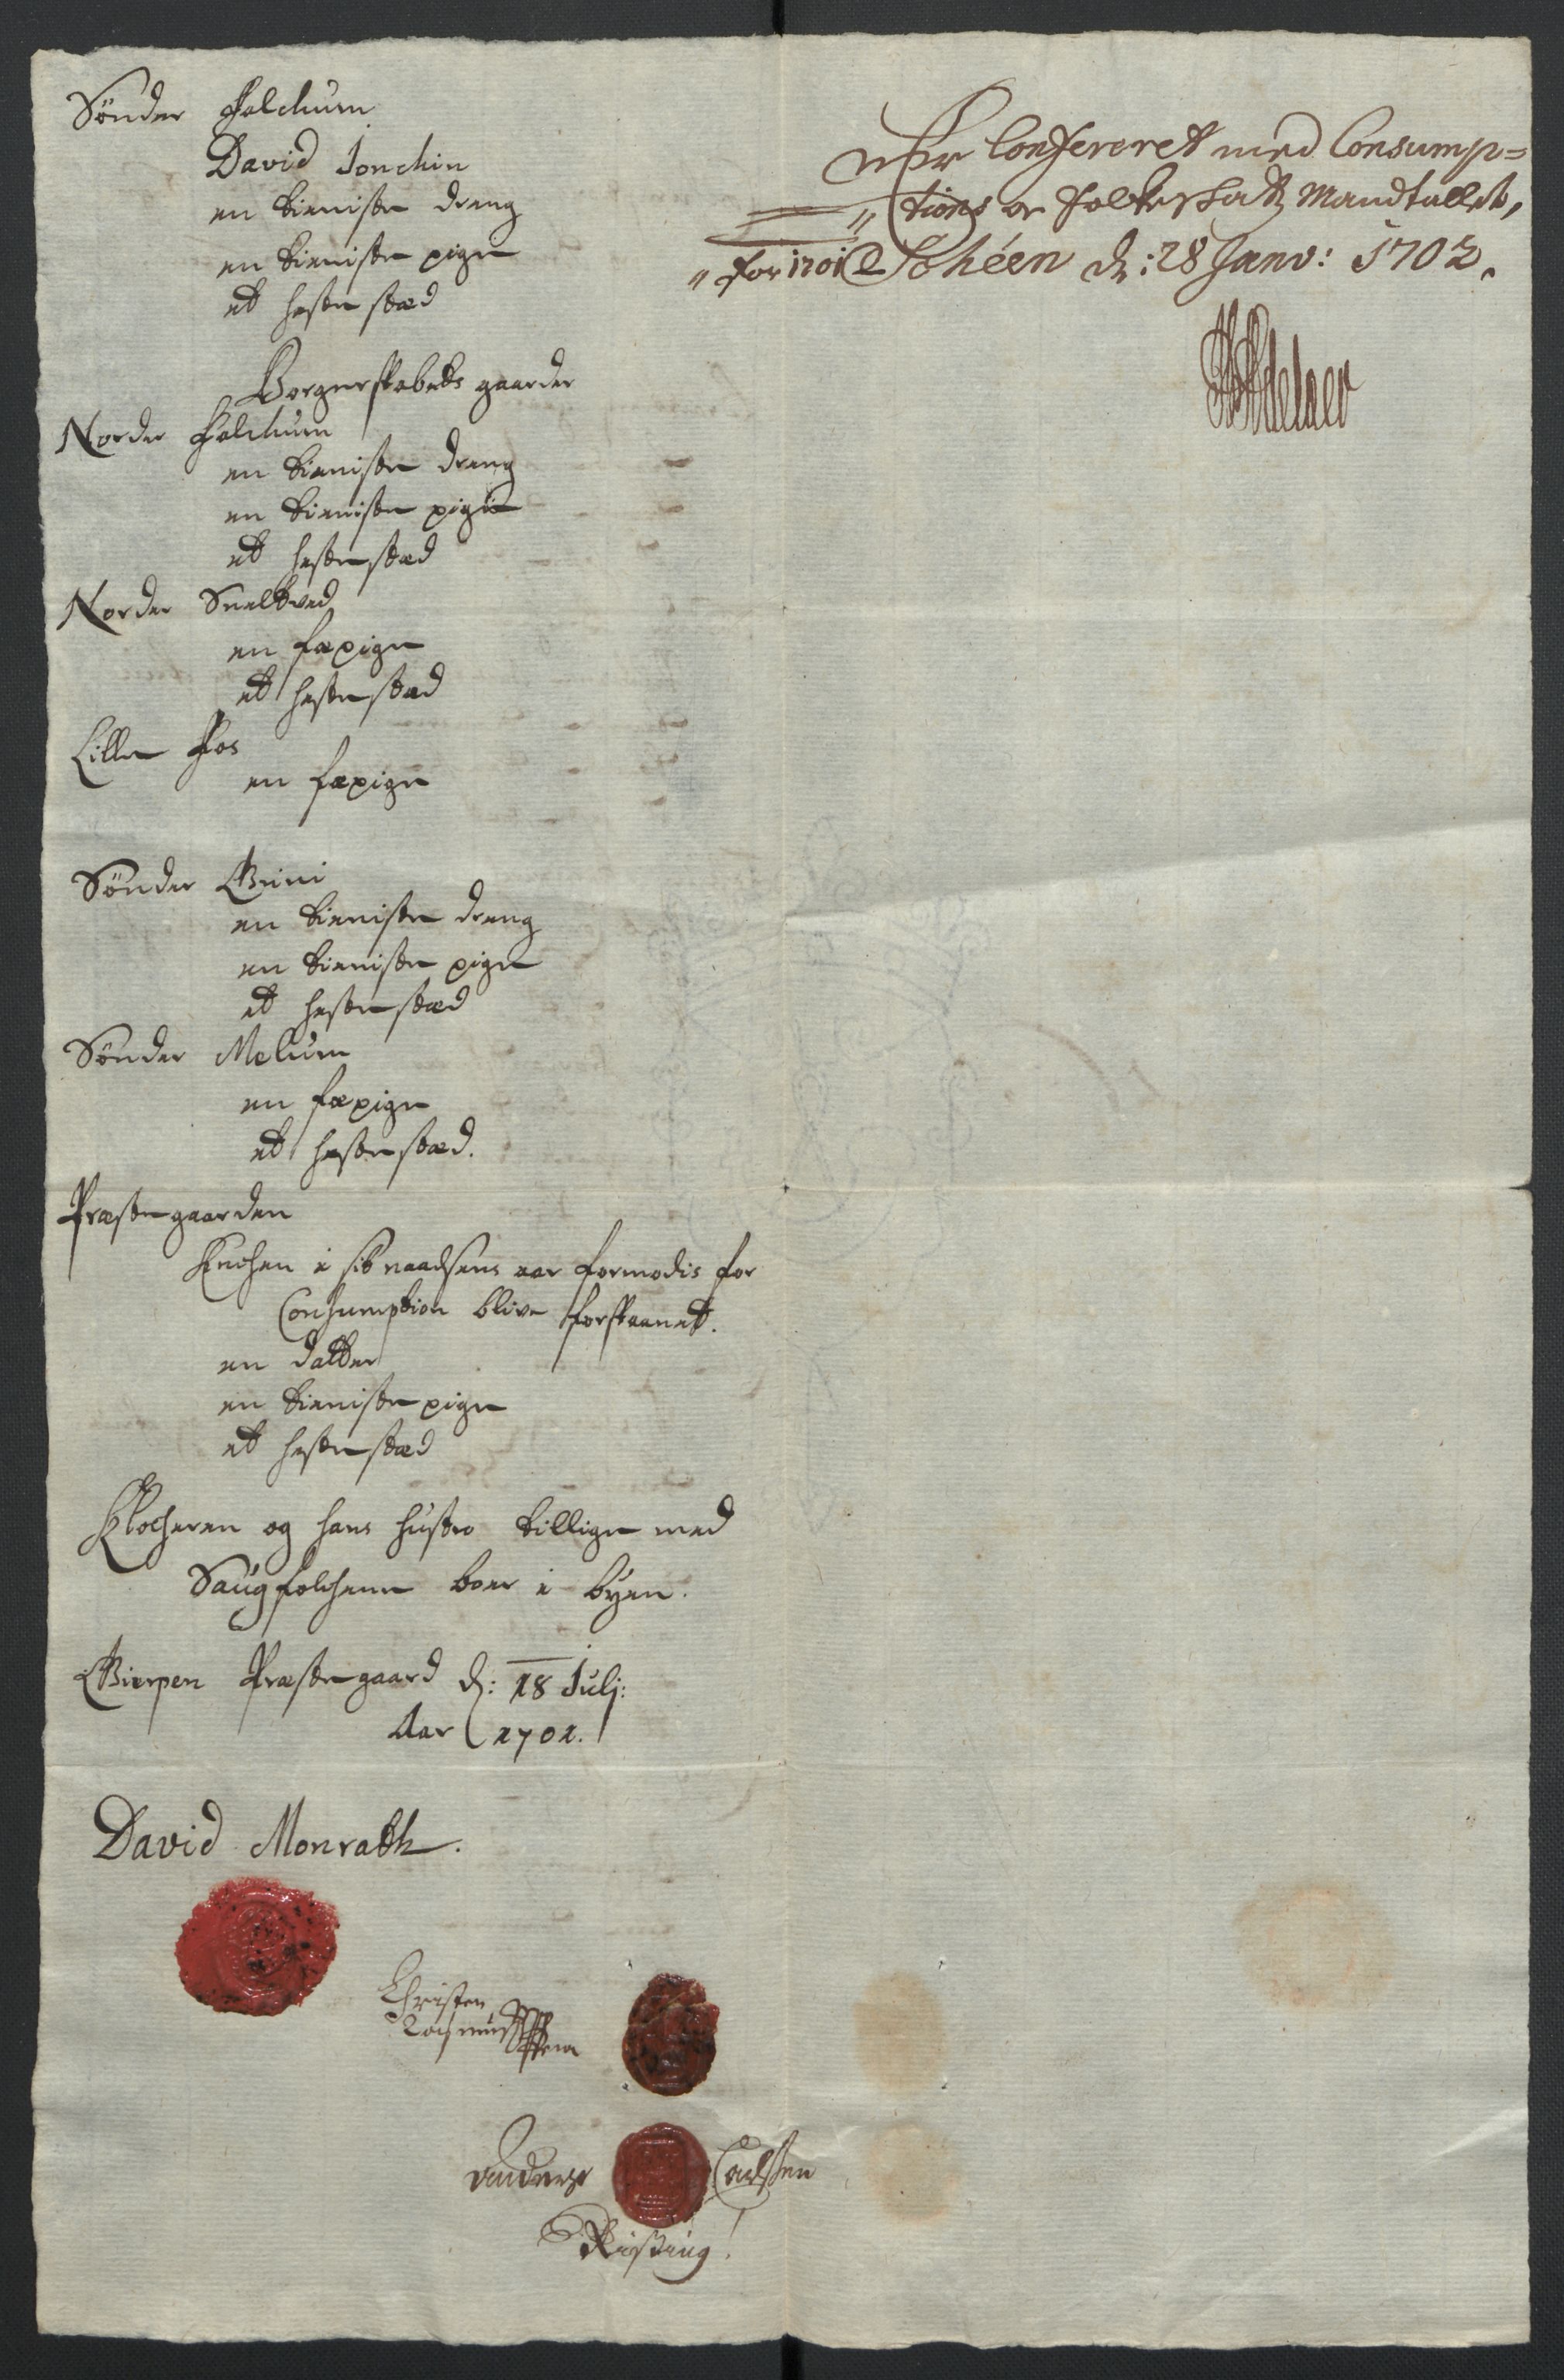 Sönder Falchum
David Jonchin
en tieniste dreng
en tieniste pige
et hestestæd
Borgerskabets gaarder
Norder Falchum
en tieniste dreng
en tieniste pige
et hestestæd
Norder Sneltved
en fæpige
et hestestæd
Lille Fos
en fæpige
Sönder Grini
en tieniste dreng
en tieniste pige
et hestestæd
Sönder Melum
en fæpige
et hestestæd.
Præstegaarden
Enchen i sit naadsens aar formodis for
Consumption blive forskaanet.
en datter
en tieniste pige
et hestestæd
Klocheren og hans hustro tillige med
Saugfolchene boer i byen.
Gierpen Præstegaard d: 18 Julj:
Aar 1701.
David Monrath.
Christen
Rasmussen
Anders Carlsen
Rising
Er Confereret med Consump=
tions og Folkeskatz Mandtallet,
for 1701 Schéen d: 28 Janv: 1702.
Adelaer